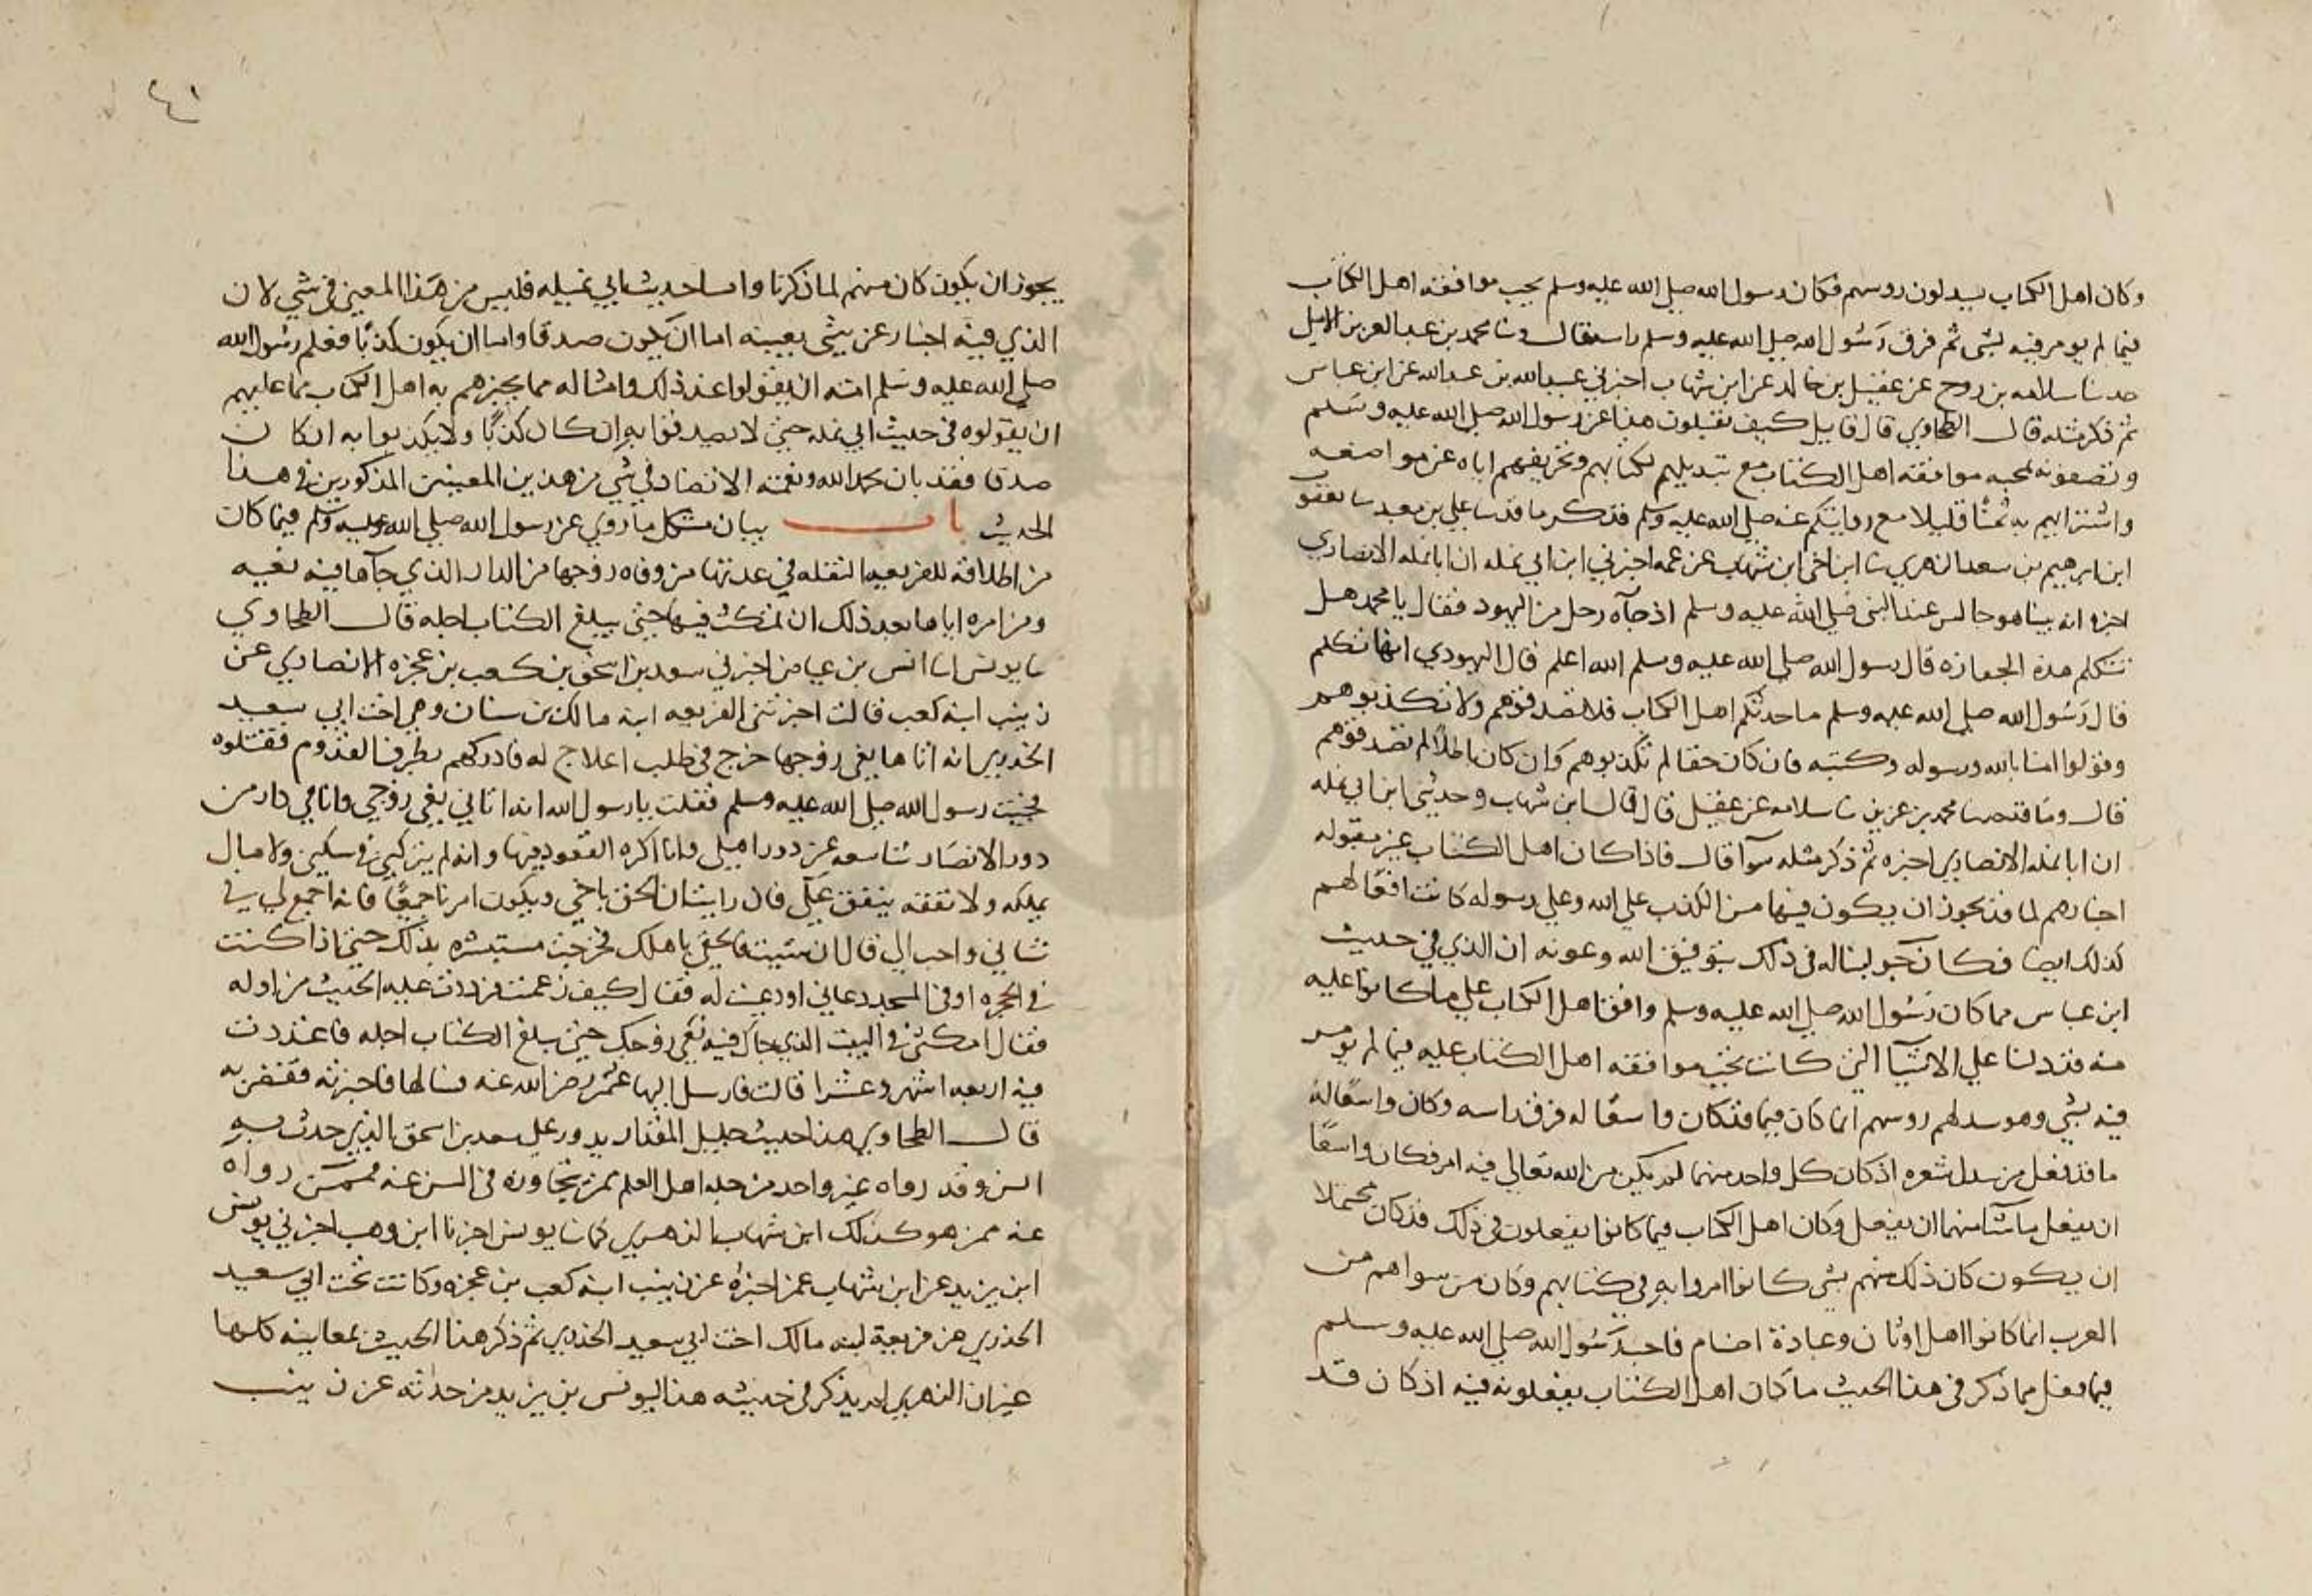 وكان اهل الكتاب يسدلون روسهم فكان رسول الله صلى الله عليه وسلم يحب موافقة اهل الكتاب
فيما لم يومر فيه بشي ثم فرق رسول الله صلى الله عليه وسلم راسه قال ونا محمد بن عبد العزيز الايلي
حدثنا سلامه بن روح عن عقيل بن خالد عن ابن شهاب اخبرني عبيد الله بن عبد الله عن ابن عباس
ثم ذكر مثله قال الطحاوي قال قايل كيف تقبلون هذا عن رسول الله صلى الله عليه وسلم
وتضيفونه لمحبه موافقه اهل الكتاب مع تبديلهم لكتابهم وتحريفهم اياه عن مواضعه
واشترايهم به ثمنًا قليلا مع روايتكم عنه صلى الله عليه وسلم فذكر ما قد نا علي بن معبد نا يعقوب
ابن ابرهيم بن سعد الزهري نا ابن اخي ابن شهاب عن عمه اخبرني ابن ابي نمله ان ابا نمله الانصاري
اخبره انه بينا هو جالس عند النبي صلى الله عليه وسلم اذ جآه رجل من اليهود فقال يا محمد هل
تتكلم هذه الجنازه قال رسول الله صلى الله عليه وسلم الله اعلم قال اليهودي انها تتكلم
قال رسول الله صلى الله عليه وسلم ما حدثكم اهل الكتاب فلا تصدقوهم ولا تكذبوهم
وقولوا امنا بالله ورسوله وكتبه فان كان حقا لم تكذبوهم وان كان باطلًا لم تصدقوهم
قال وما قد حدثنا محمد بن عزيز نا سلامه عن عقيل قال قال ابن شهاب وحدثني ابن ابي نمله
ان ابا نمله الانصاري اخبره ثم ذكر مثله سوآ قال فاذا كان اهل الكتاب غير مقبوله
اخبارهم لما قد يجوز ان يكون فيها من الكذب على الله وعلى رسوله كانت افعالهم
كذلك ايضا فكان جوابنا له في ذلك بتوفيق الله وعونه ان الذي في حديث
ابن عباس مما كان رسول الله صلى الله عليه وسلم وافق اهل الكتاب على ما كانوا عليه
منه قد دلنا على الاشيآ التي كانت يحب موافقه اهل الكتاب عليه فيما لم يومر
فيه بشي وهو سدلهم روسهم انما كان فيما قد كان واسعًا له فرق راسه وكان واسعًا له
ما قد فعل من سدل شعره اذ كان كل واحد منهما لم يكن من الله تعالى فيه امر فكان واسعًا
ان يفعل ما شآ منهما ان يفعل وكان اهل الكتاب فيما كانوا يفعلون في ذلك قد كان محتملا
ان يكون كان ذلك منهم بشي كانوا امروا به في كتابهم وكان من سواهم من
العرب انما كانوا اهل اوثان وعبادة اصنام فاحب رسول الله صلى الله عليه وسلم
فيما فعل مما ذكر في هذا الحديث ما كان اهل الكتاب يفعلونه فيه اذ كان قد
٤١
يجوز ان يكون كان منهم لما ذكرنا واما حديث ابي نميله فليس من هذا المعنى في شي لان
الذي فيه اخبار عن شي بعينه اما ان يكون صدقا واما ان يكون كذبًا فعلم رسول الله
صلى الله عليه وسلم امته ان يقولوا عند ذلك وامثاله مما يخبرهم به اهل الكتاب ما عليهم
ان يقولوه في حديث ابي نمله حتى لا يصدقوا به ان كان كذبًا ولا يكذبوا به ان كان
صدقا فقد بان بحمد الله ونعمته الا تضاد في شي من هذين المعنيين المذكورين في هذا
الحديث باب بيان مشكل ما روي عن رسول الله صلى الله عليه وسلم فيما كان
من اطلاقه للفريعه النقله في عدتها من وفاه زوجها من الدار الذي جآها فيه نعيه
ومن امره اياها بعد ذلك ان تمكث فيها حتى يبلغ الكتاب اجله قال الطحاوي
نا يونس انا انس بن عياض اخبرني سعد بن اسحق بن كعب بن عجزه الانصاري عن
زينب ابنه كعب قالت اخبرتني الفريعه ابنة مالك بن سنان وهي اخت ابي سعيد
الخدري انه اتاها نعي زوجها خرج في طلب اعلاج له فادركهم بطرف القدوم فقتلوه
فجيت رسول الله صلى الله عليه وسلم فقلت يا رسول الله انه اتاني نعي زوجي وانا في دار من
دور الانصار شاسعه عن دور اهلي وانا اكره القعود فيها وانه لم يتركني في سكنى ولا مال
يملكه ولا نفقه ينفق علي فان رايت ان الحق باخي ويكون امرنا جميعًا فانه اجمع لي في
شاني واحب الي قال ان شيت فالحقي باهلك فخرجت مستبشره بذلك حتى اذا كنت
في الحجره او في المسجد دعاني او دعيت له فقال كيف زعمت فرددت عليه الحديث من اوله
فقال امكثي في البيت الذي جاك فيه نعي زوجك حتى يبلغ الكتاب اجله فاعتددت
فيه اربعه اشهر وعشرا قالت فارسل اليها عثمن رضي الله عنه فسالها فاخبرته فقضى به
قال الطحاوي هذا حديث جليل المقدار يدور على سعد بن اسحق الذي حدث به
انس وقد رواه غير واحد من جله اهل العلم ممن يتجاوزه في السن عنه فممن رواه
عنه ممن هو كذلك ابن شهاب الزهري كما نا يونس اخبرنا ابن وهب اخبرني يونس
ابن يزيد عن ابن شهاب عمن اخبره عن زينب ابنة كعب بن عجزه وكانت تحت ابي سعيد
الخدري عن فريعة ابنه مالك اخت ابي سعيد الخدري ثم ذكر هذا الحديث بمعانيه كلها
غير ان الزهري لم يذكر في حديثه هذا ليونس بن يزيد من حدثه عن زينب